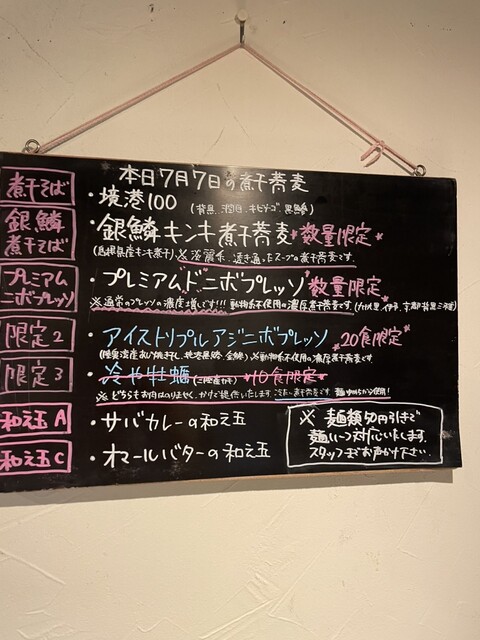 本日7月7日の煮干蕎麦
煮干そば
・境港100
銀鱗煮干そば
・銀鱗キンキ煮干蕎麦 数量限定
(島根県産キンキ煮干) ※淡麗系、透き通ったスープの煮干蕎麦です。
プレミアムニボプレッソ
・プレミアム"ド"ニボプレッソ 数量限定
※通常のプレッソの濃度増しです!!! 動物系不使用の濃厚煮干蕎麦です。
限定2
・アイストリプルアジニボプレッソ 20食限定
※動物系不使用の濃厚煮干蕎麦です
限定3
・冷や牡蠣 10食限定
※どちらもお肉はのりません。かけで提供いたします 冷たい煮干蕎麦です。
和え玉A
・サバカレーの和え玉
和え玉C
・オマールバターの和え玉
※麺類50円引きで
対応いたします。
スタッフまでお声かけ下さい。